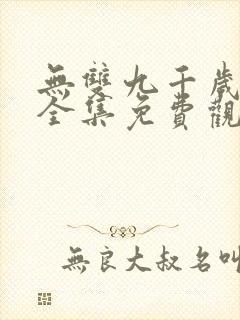 無雙九千歲
全集免費觀
無良大叔名叫